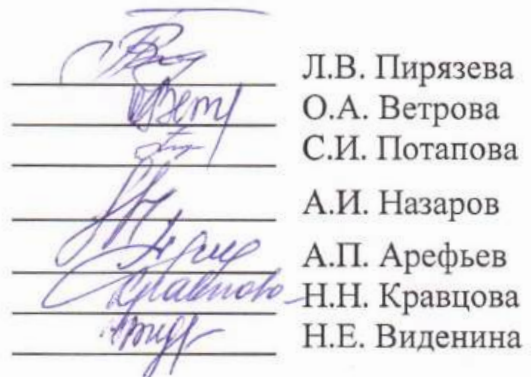 Л.В. Пирязева
О.А. Ветрова
С.И. Потапова
А.И. Назаров
А.П. Арефьев
Н.Н. Кравцова
Н.Е. Виденина